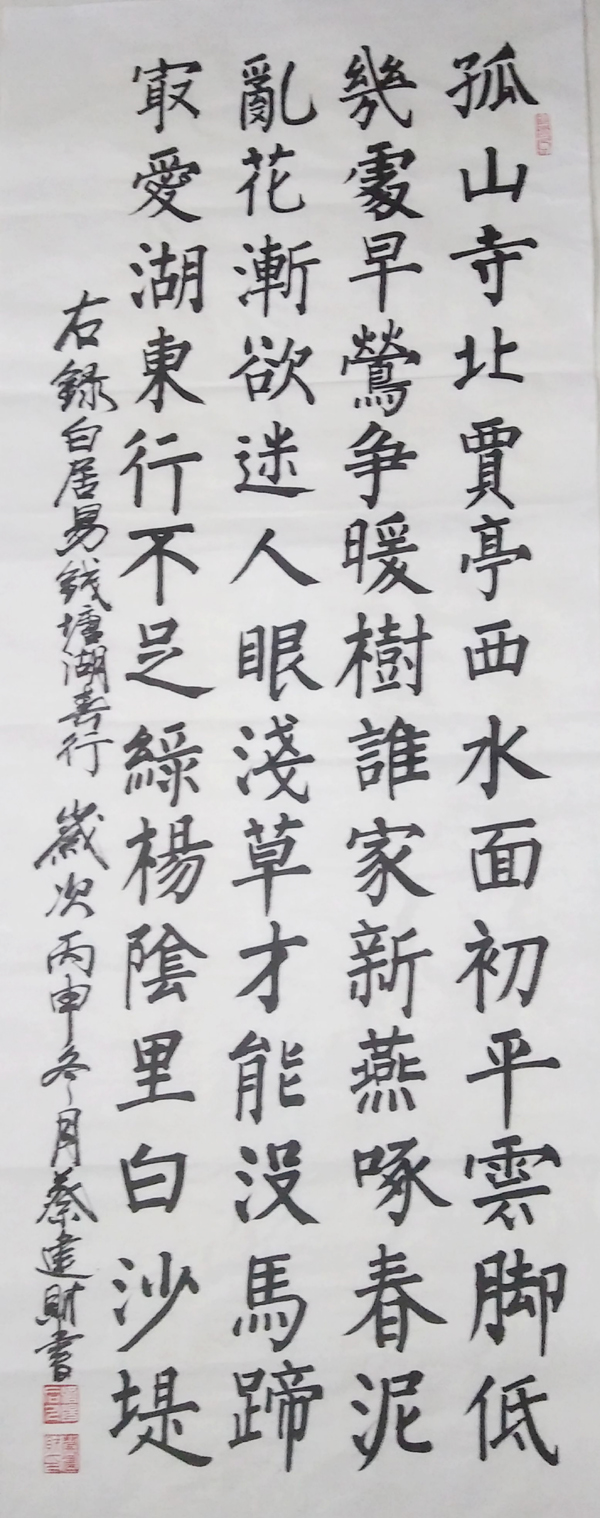 孤山寺北賈亭西水面初平雲脚低
幾處早鶯争暖樹誰家新燕啄春泥
亂花漸欲迷人眼淺草才能没馬蹄
冣愛湖東行不足綠楊陰里白沙堤
右録白居易錢塘湖春行 歲次丙申冬月蔡建財書